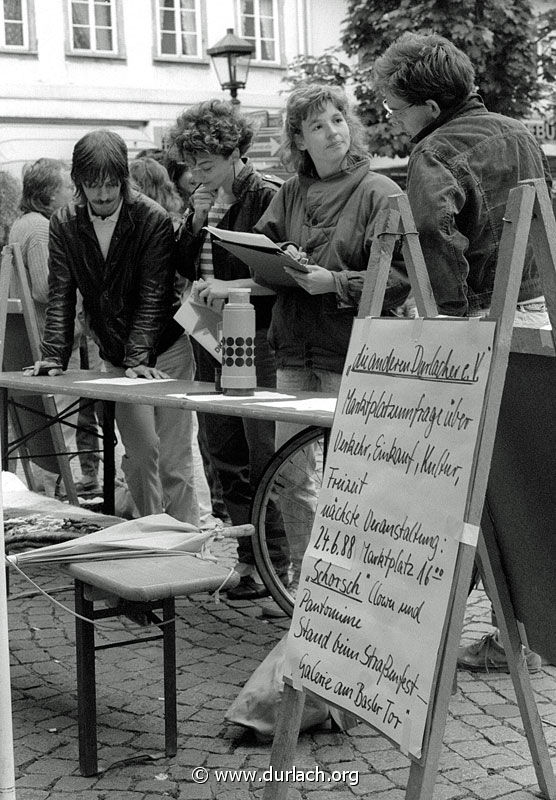 „die anderen Durlacher e.V"
Marktplatzumfrage über
Verkehr, Einkauf, Kultur,
Freizeit
nächste Veranstaltung:
24.6.88 Marktplatz 16⁰⁰
„Schorsch" Clown und
Pantomime
Stand beim Straßenfest –
Galerie am Basler Tor
© www.durlach.org